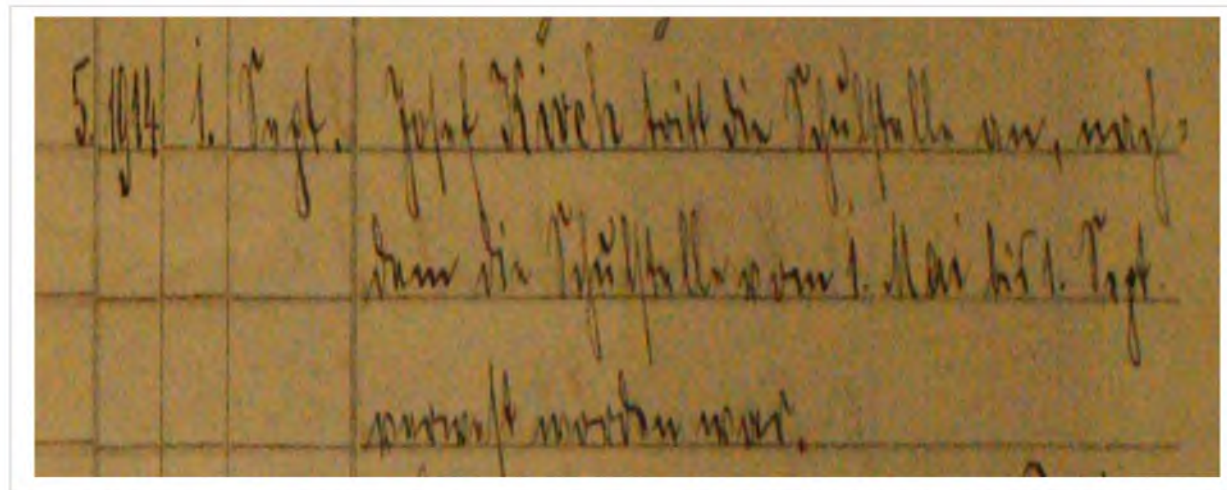 5. 1914 1. Sept. Josef Kirch tritt die Schulstelle an, nach-
dem die Schulstelle vom 1. Mai bis 1. Sept.
verwest worden war.